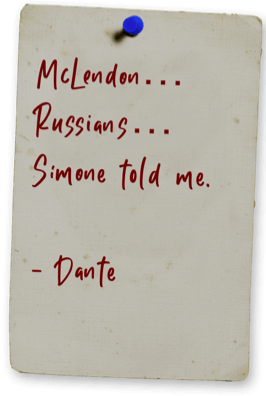 McLendon...
Russians...
Simone told me.
- Dante